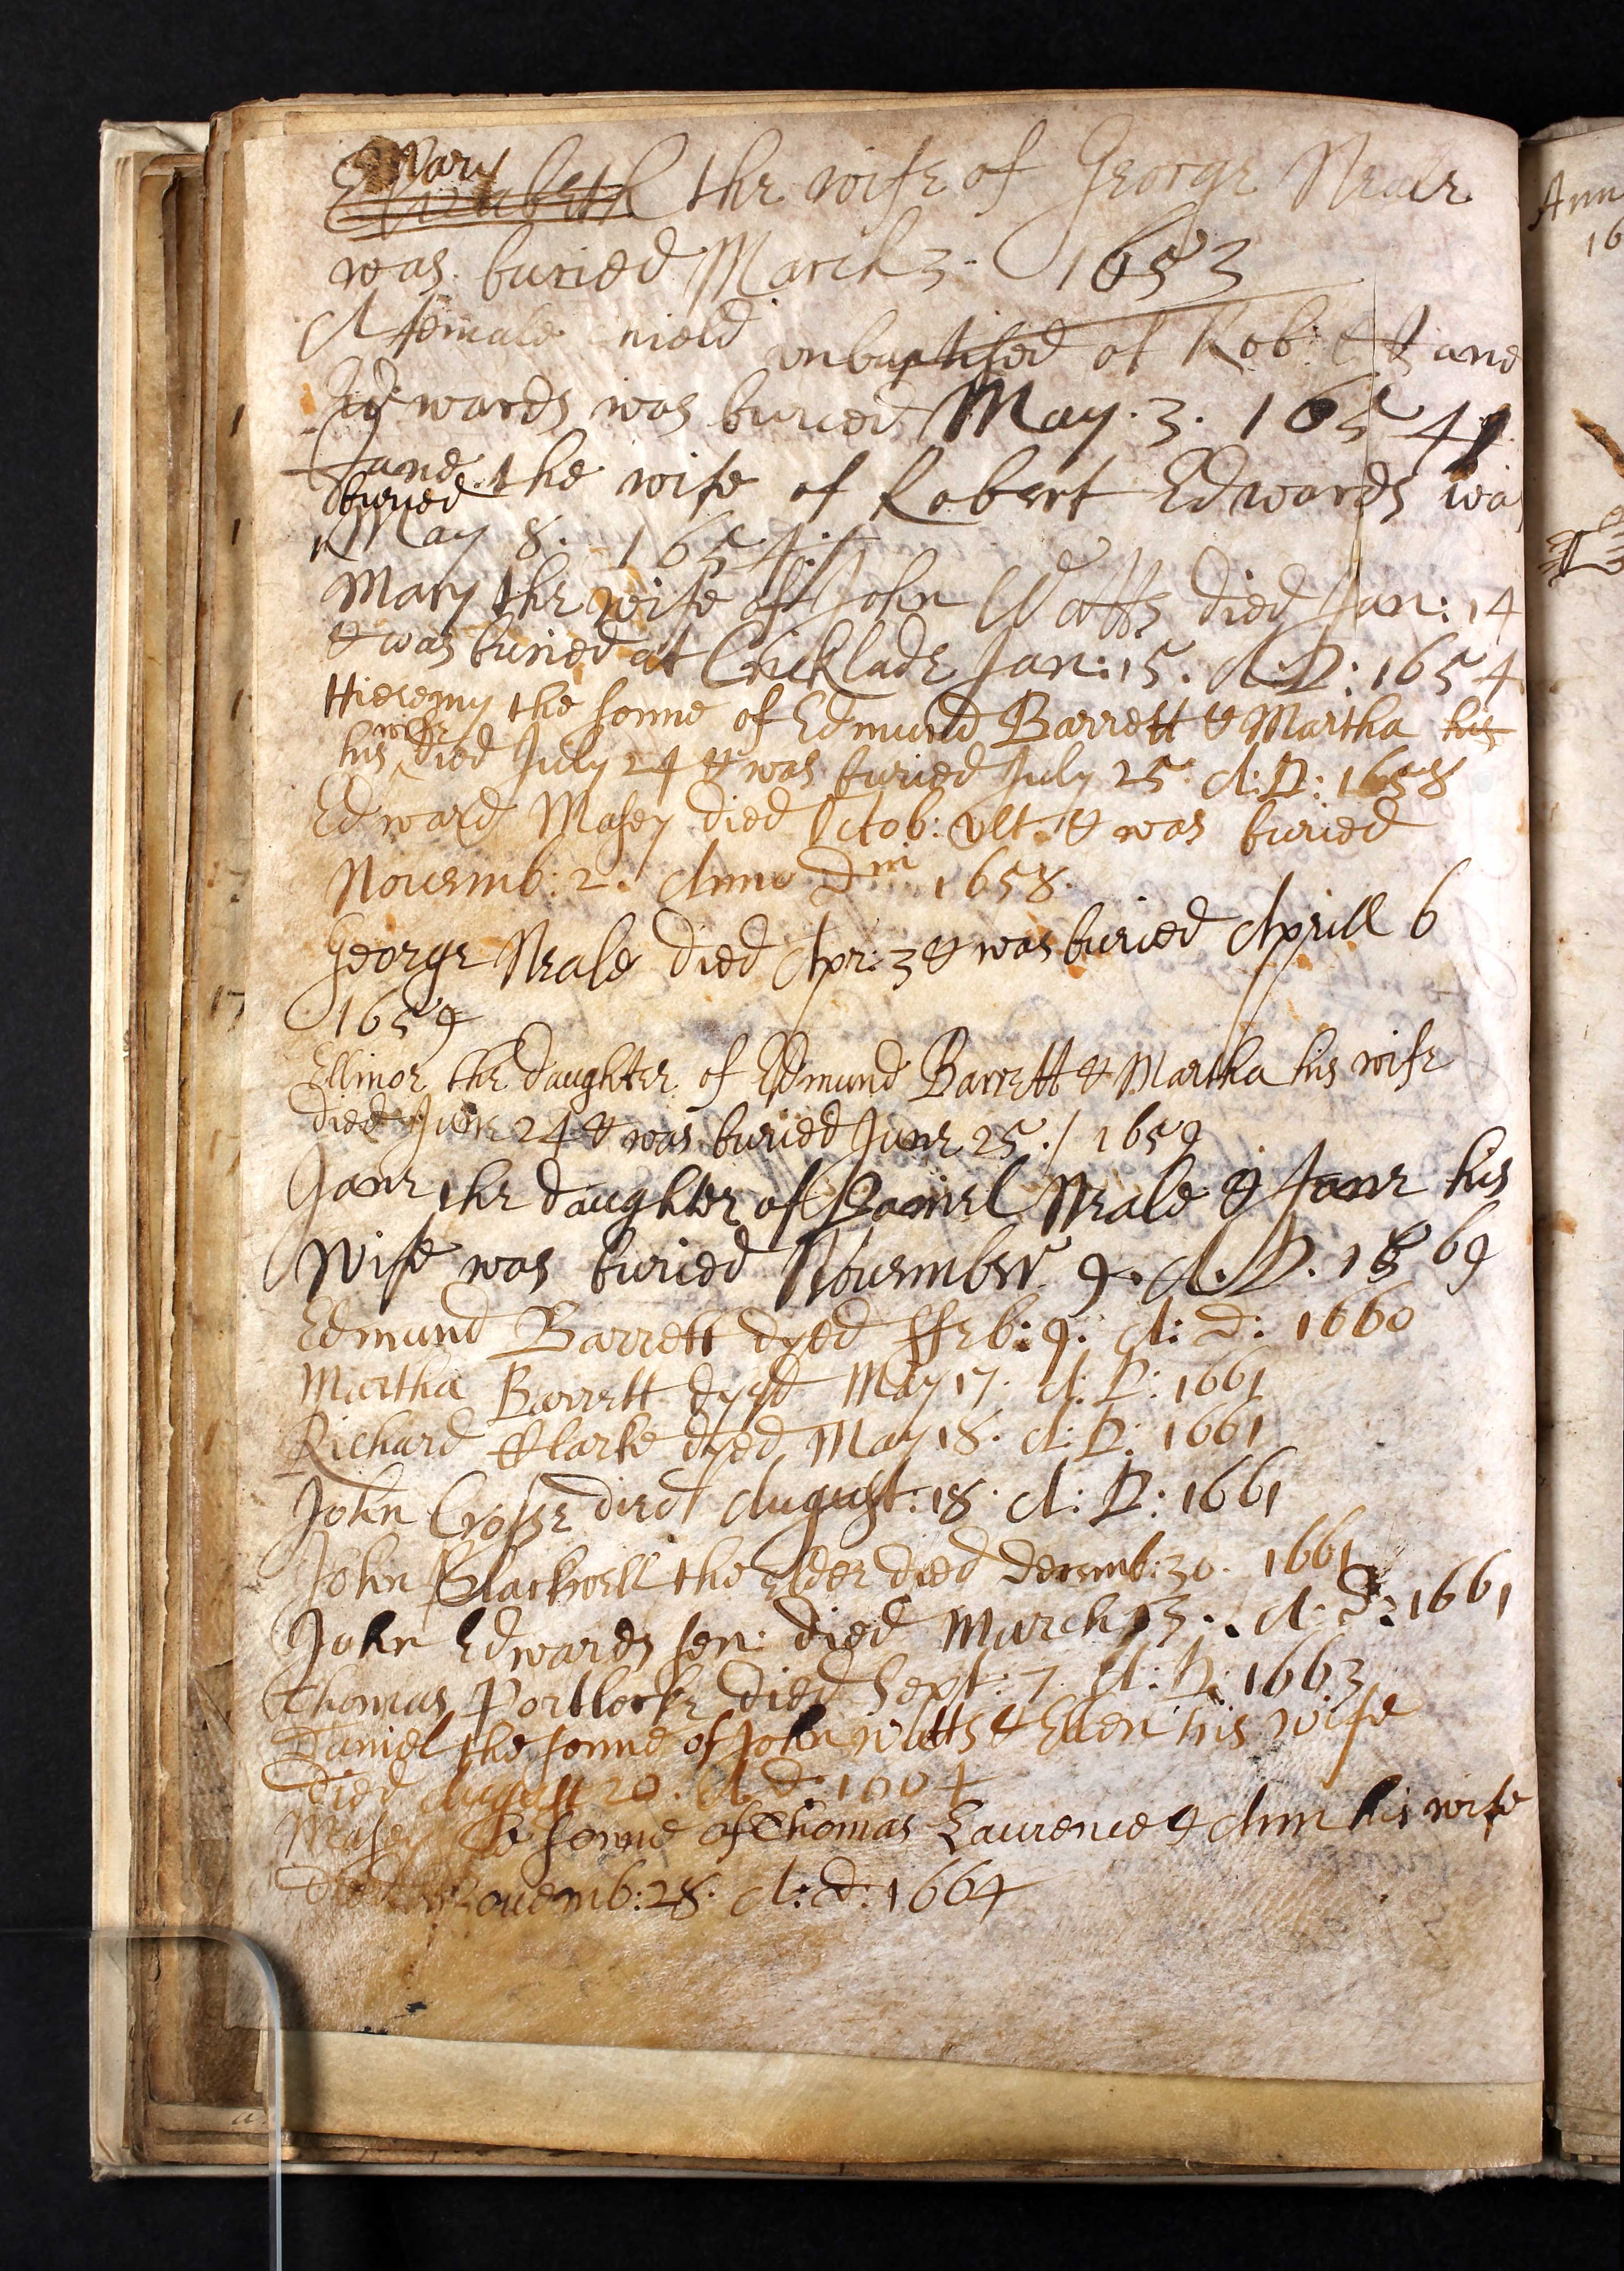 Mary
Elizabeth the wife of George Neale
was buried March 3. 1653
A female child unbaptised of Rob: & Jane
Edwards was buried May. 3. 1654
Jane the wife of Robert Edwards was
buried
May 8. 1654.
Mary the wife of John Watts died Jan: 14
& was buried at Cricklade Jan: 15. A. D: 1654
Hieremy the sonne of Edmund Barrett & Martha his
wife
his died July 24 & was buried July 25 A: D: 1658
Edward Masey died Octob: ult. & was buried
Nouemb: 2. Anno Dni 1658.
George Neale died Apr: 3 & was buried Aprill 6
1659
Ellinor the daughter of Edmund Barrett & Martha his wife
died June 24 & was buried June 25. / 1659
Jane the daughter of Daniel Neale & Jane his
Wife was buried November 9. A. D. 1669
Edmund Barrett dyed ffeb: 9: A: D: 1660
Martha Barrett dyed May 17. A: D: 1661
Richard Clarke dyed May 18. A: D: 1661
John Crosse died August: 18. A: D: 1661
John Blackwell the Elder died decemb: 30. 1661
John Edwards sen: died March 13. A: D: 1661
Thomas Portlocke died Sept: 7 A: D: 1663
Daniel the sonne of John Watts & Ellen his wife
died August 20. A D: 1664
Masey the sonne of Thomas Laurence & Ann his wife
died Nouemb: 28. A: D: 1664
Ann
16